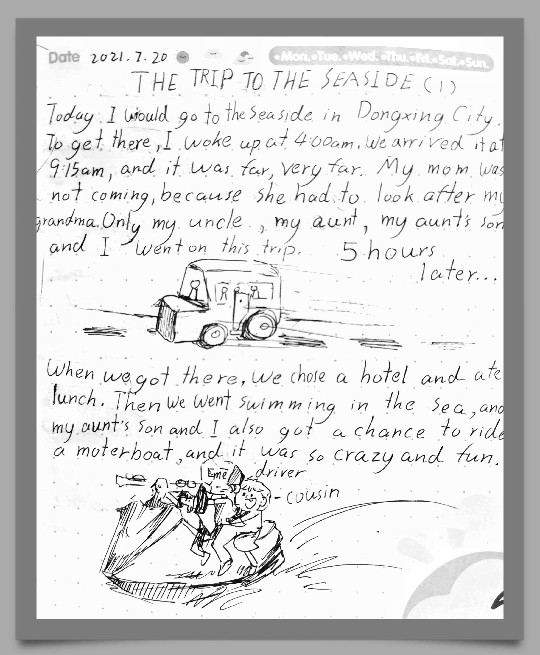 Date 2021.7.20 •Mon.•Tue.•Wed.•Thu.•Fri.•Sat.•Sun.
THE TRIP TO THE SEASIDE (1)
Today I would go to the Seaside in Dongxing City.
To get there, I woke up at 4:00am. We arrived it at
9:15am, and it was far, very far. My mom was
not coming, because she had to look after my
grandma. Only my uncle, my aunt, my aunt's son
and I went on this trip. 5 hours
later...
When we got there, we chose a hotel and ate
lunch. Then we went swimming in the sea, and
my aunt's son and I also got a chance to ride
a moterboat, and it was so crazy and fun.
me driver
- cousin